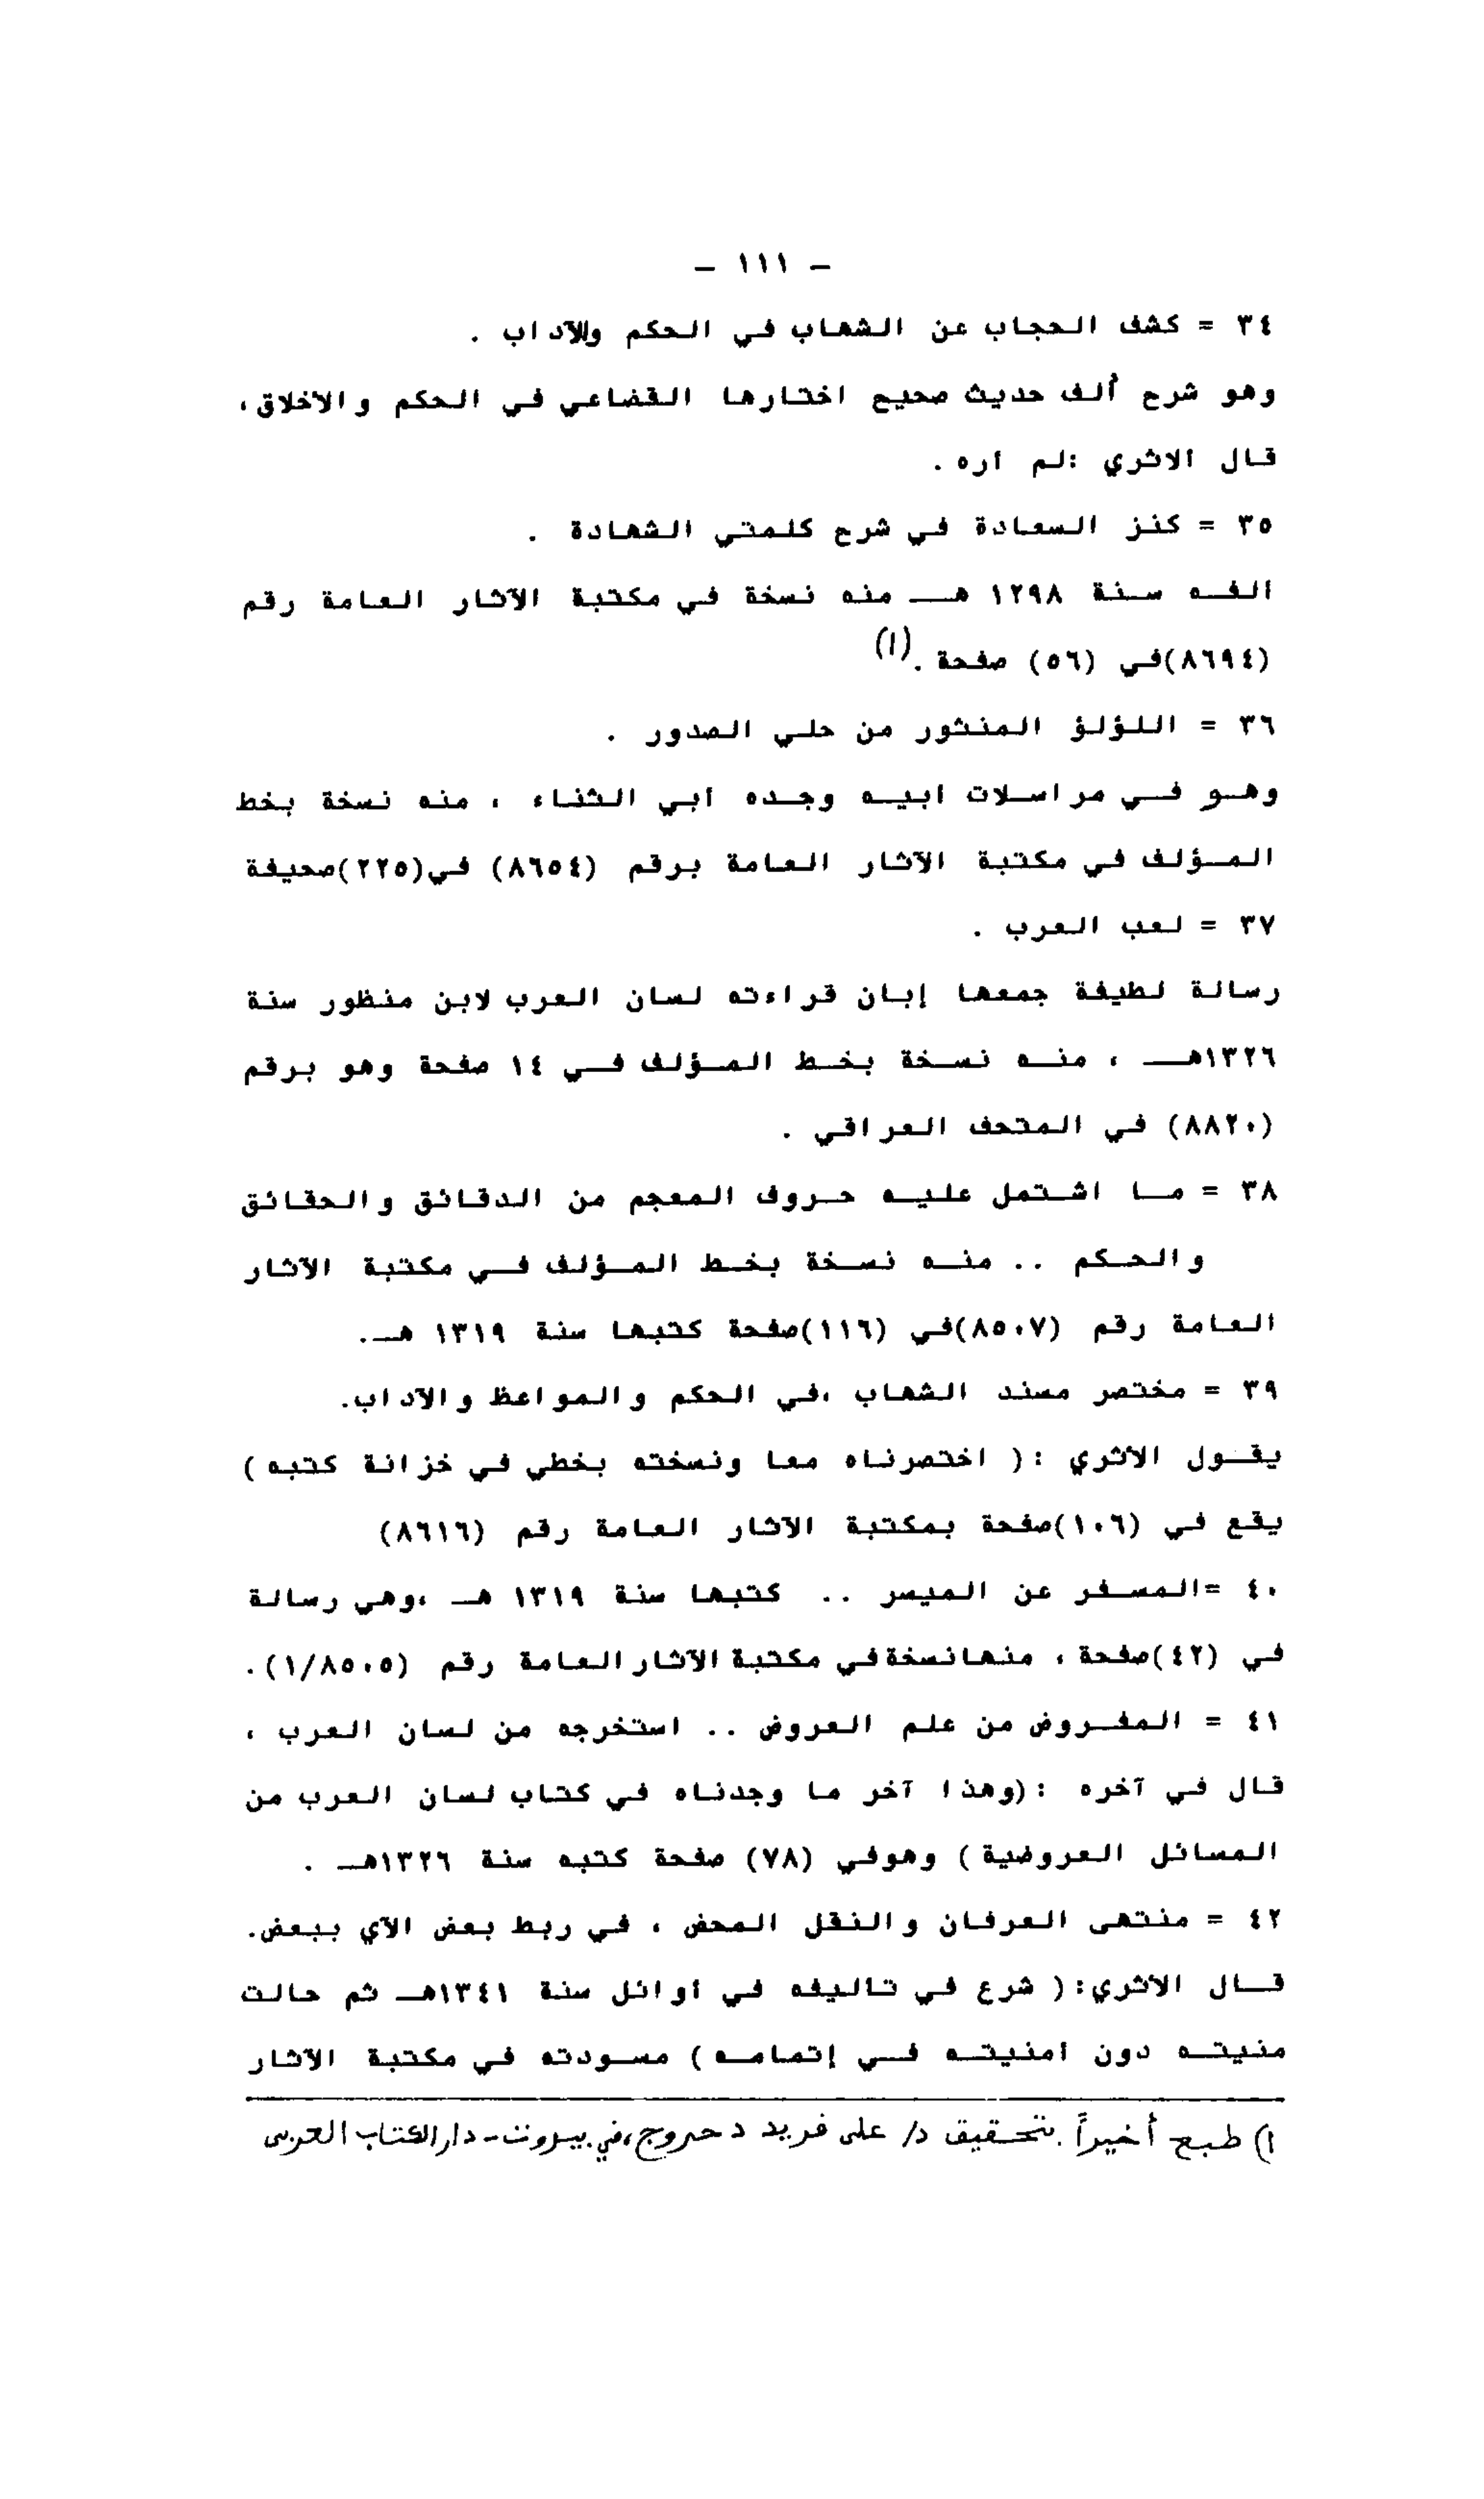 - ١١١ -
٣٤ = كشف الحجاب عن الشهاب في الحكم والآداب .
وهو شرح ألف حديث صحيح اختارها القضاعي في الحكم والأخلاق،
قال الاثري :لم اره .
٣٥ = كنز السعادة في شرح كلمتي الشهادة .
الفه سنة ١٢٩٨ هـ منه نسخة في مكتبة الآثار العامة رقم
(٨٦٩٤)في (٥٦) صفحة .(١)
٣٦ = اللؤلؤ المنثور من حلي الصدور .
وهو في مراسلات ابيه وجده أبي الثناء ، منه نسخة بخط
المؤلف في مكتبة الآثار العامة برقم (٨٦٥٤) في(٢٢٥)صحيفة
٣٧ = لعب العرب .
رسالة لطيفة جمعها إبان قراءته لسان العرب لابن منظور سنة
١٣٢٦هـ ، منه نسخة بخط المؤلف في ١٤ صفحة وهو برقم
(٨٨٢٠) في المتحف العراقي .
٣٨ = ما اشتمل عليه حروف المعجم من الدقائق والحقائق
والحكم .. منه نسخة بخط المؤلف في مكتبة الآثار
العامة رقم (٨٥٠٧)في (١١٦)صفحة كتبها سنة ١٣١٩ هـ.
٣٩ = مختصر مسند الشهاب ،في الحكم والمواعظ والآداب.
يقول الأثري :( اختصرناه معا ونسخته بخطي في خزانة كتبه )
يقع في (١٠٦)صفحة بمكتبة الآثار العامة رقم (٨٦١٦)
٤٠ =المسفر عن الميسر .. كتبها سنة ١٣١٩ هـ ،وهي رسالة
في (٤٢)صفحة ، منها نسخة في مكتبة الآثار العامة رقم (١/٨٥٠٥).
٤١ = المفروض من علم العروض .. استخرجه من لسان العرب ،
قال في آخره :(وهذا آخر ما وجدناه في كتاب لسان العرب من
المسائل العروضية ) وهوفي (٧٨) صفحة كتبه سنة ١٣٢٦هـ .
٤٢ = منتهى العرفان والنقل المحض ، في ربط بعض الآي ببعض.
قال الأثري:( شرع في تاليفه في أوائل سنة ١٣٤١هـ ثم حالت
منيته دون امنيته في إتمامه ) مسودته في مكتبة الآثار
١) طبع أخيراً بتحقيق د/ على فريد دحروج،في بيروت-دار الكتاب العربى